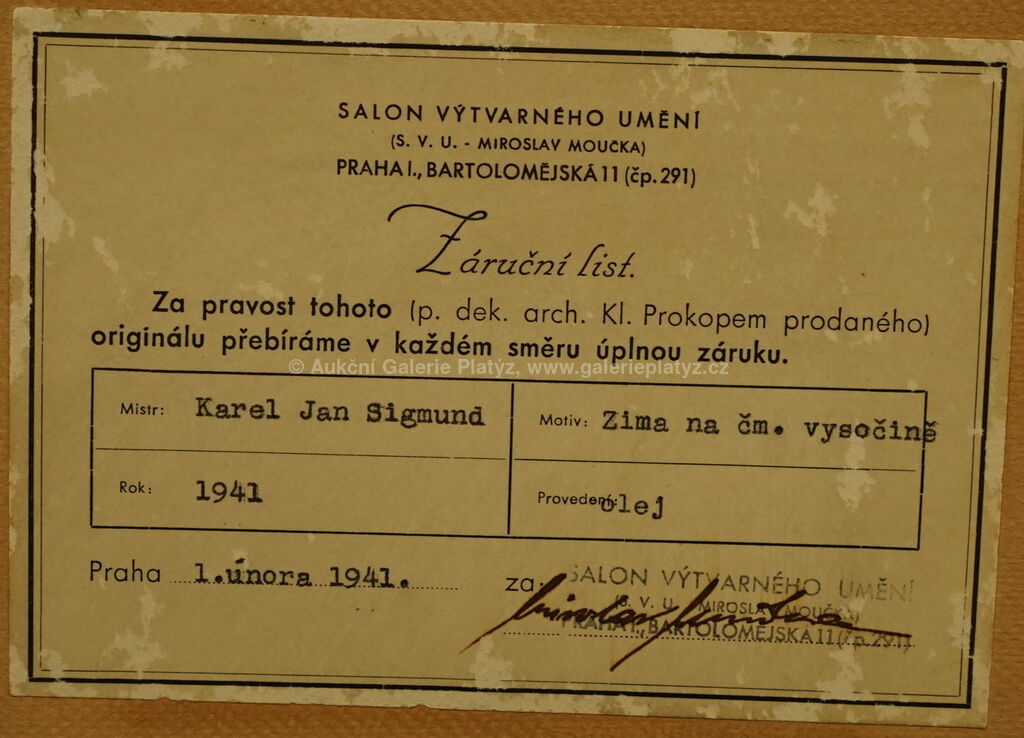 SALON VÝTVARNÉHO UMĚNÍ
(S. V. U. - MIROSLAV MOUČKA)
PRAHA I., BARTOLOMĚJSKÁ 11 (čp. 291)
Záruční list.
Za pravost tohoto (p. dek. arch. Kl. Prokopem prodaného)
originálu přebíráme v každém směru úplnou záruku.
© Aukční Galerie Platýz, www.galerieplatyz.cz
Mistr: Karel Jan Sigmund
Motiv: Zima na čm. vysočině
Rok: 1941
Provedení: olej
Praha 1.února 1941.
za: SALON VÝTVARNÉHO UMĚNÍ
(S. V. U. MIROSLAV MOUČKA)
PRAHA I., BARTOLOMĚJSKÁ 11 (čp. 291)